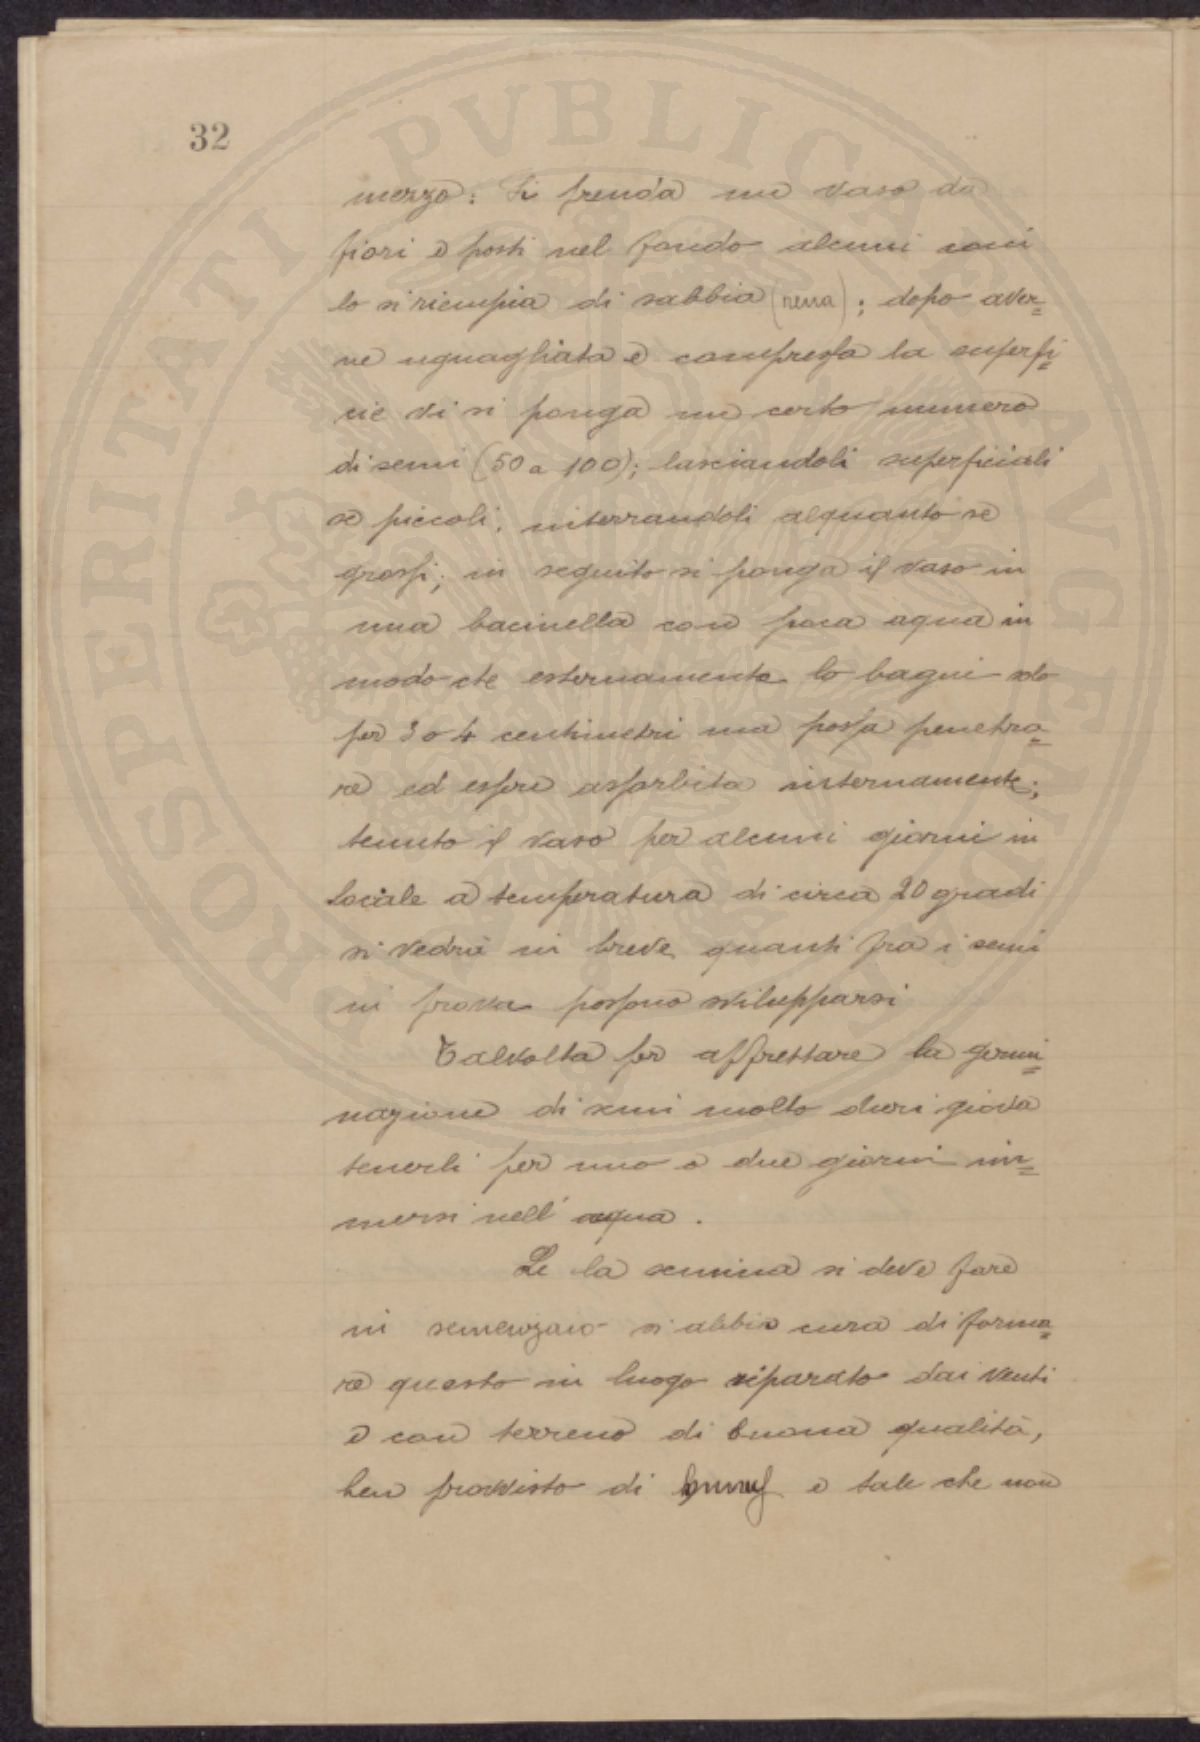 PROSPERITATI PVBLICAE AVGENDAE
32
mezzo: Si prenda un vaso da
fiori e posti nel fondo alcuni cocci
lo si riempia di sabbia (rena); dopo aver=
ne uguagliata e compressa la superfi=
cie vi si ponga un certo numero
di semi (50 a 100); lasciandoli superficiali
se piccoli, interrandoli alquanto se
grossi; in seguito si ponga il vaso in
una bacinella con poca aqua in
modo che esternamente lo bagni solo
per 3 o 4 centimetri ma possa penetra=
re ed essere assorbita internamente;
tenuto il vaso per alcuni giorni in
locale a temperatura di circa 20 gradi
si vedrà in breve quanti fra i semi
in prova possono svilupparsi
Talvolta per affrettare la germi=
nazione di semi molto duri giova
tenerli per uno o due giorni im=
mersi nell' acqua.
Se la semina si deve fare
in semenzaio si abbia cura di forma=
re questo in luogo riparato dai venti
e con terreno di buona qualità,
ben provvisto di e tale che non